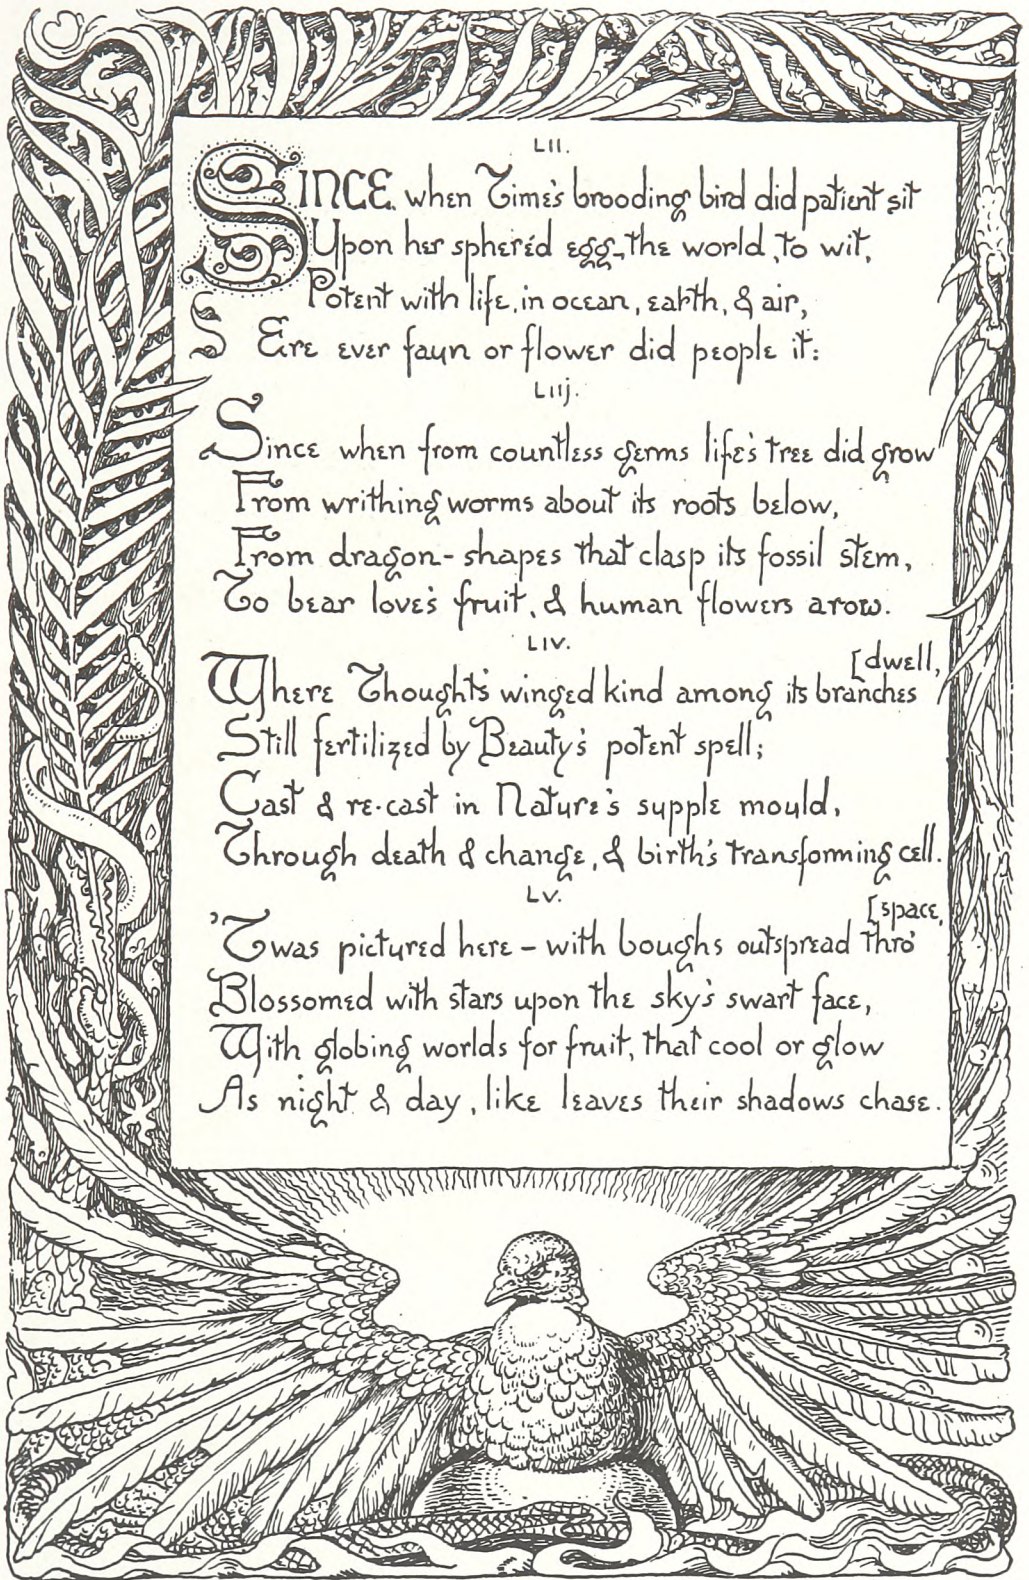 LII.
SINCE when Time's brooding bird did patient sit
Upon her spheréd egg – the world, to wit,
Potent with life, in ocean, earth, & air,
S Ere ever faun or flower did people it:
LIIJ.
Since when from countless germs life's tree did grow
From writhing worms about its roots below,
From dragon-shapes that clasp its fossil stem,
To bear love's fruit, & human flowers arow.
LIV.
[dwell,
Where Thought's winged kind among its branches
Still fertilized by Beauty's potent spell;
Cast & re-cast in Nature's supple mould,
Through death & change, & birth's transforming cell.
LV.
[space,
'Twas pictured here – with boughs outspread thro'
Blossomed with stars upon the sky's swart face,
With globing worlds for fruit, that cool or glow
As night & day, like leaves their shadows chase.